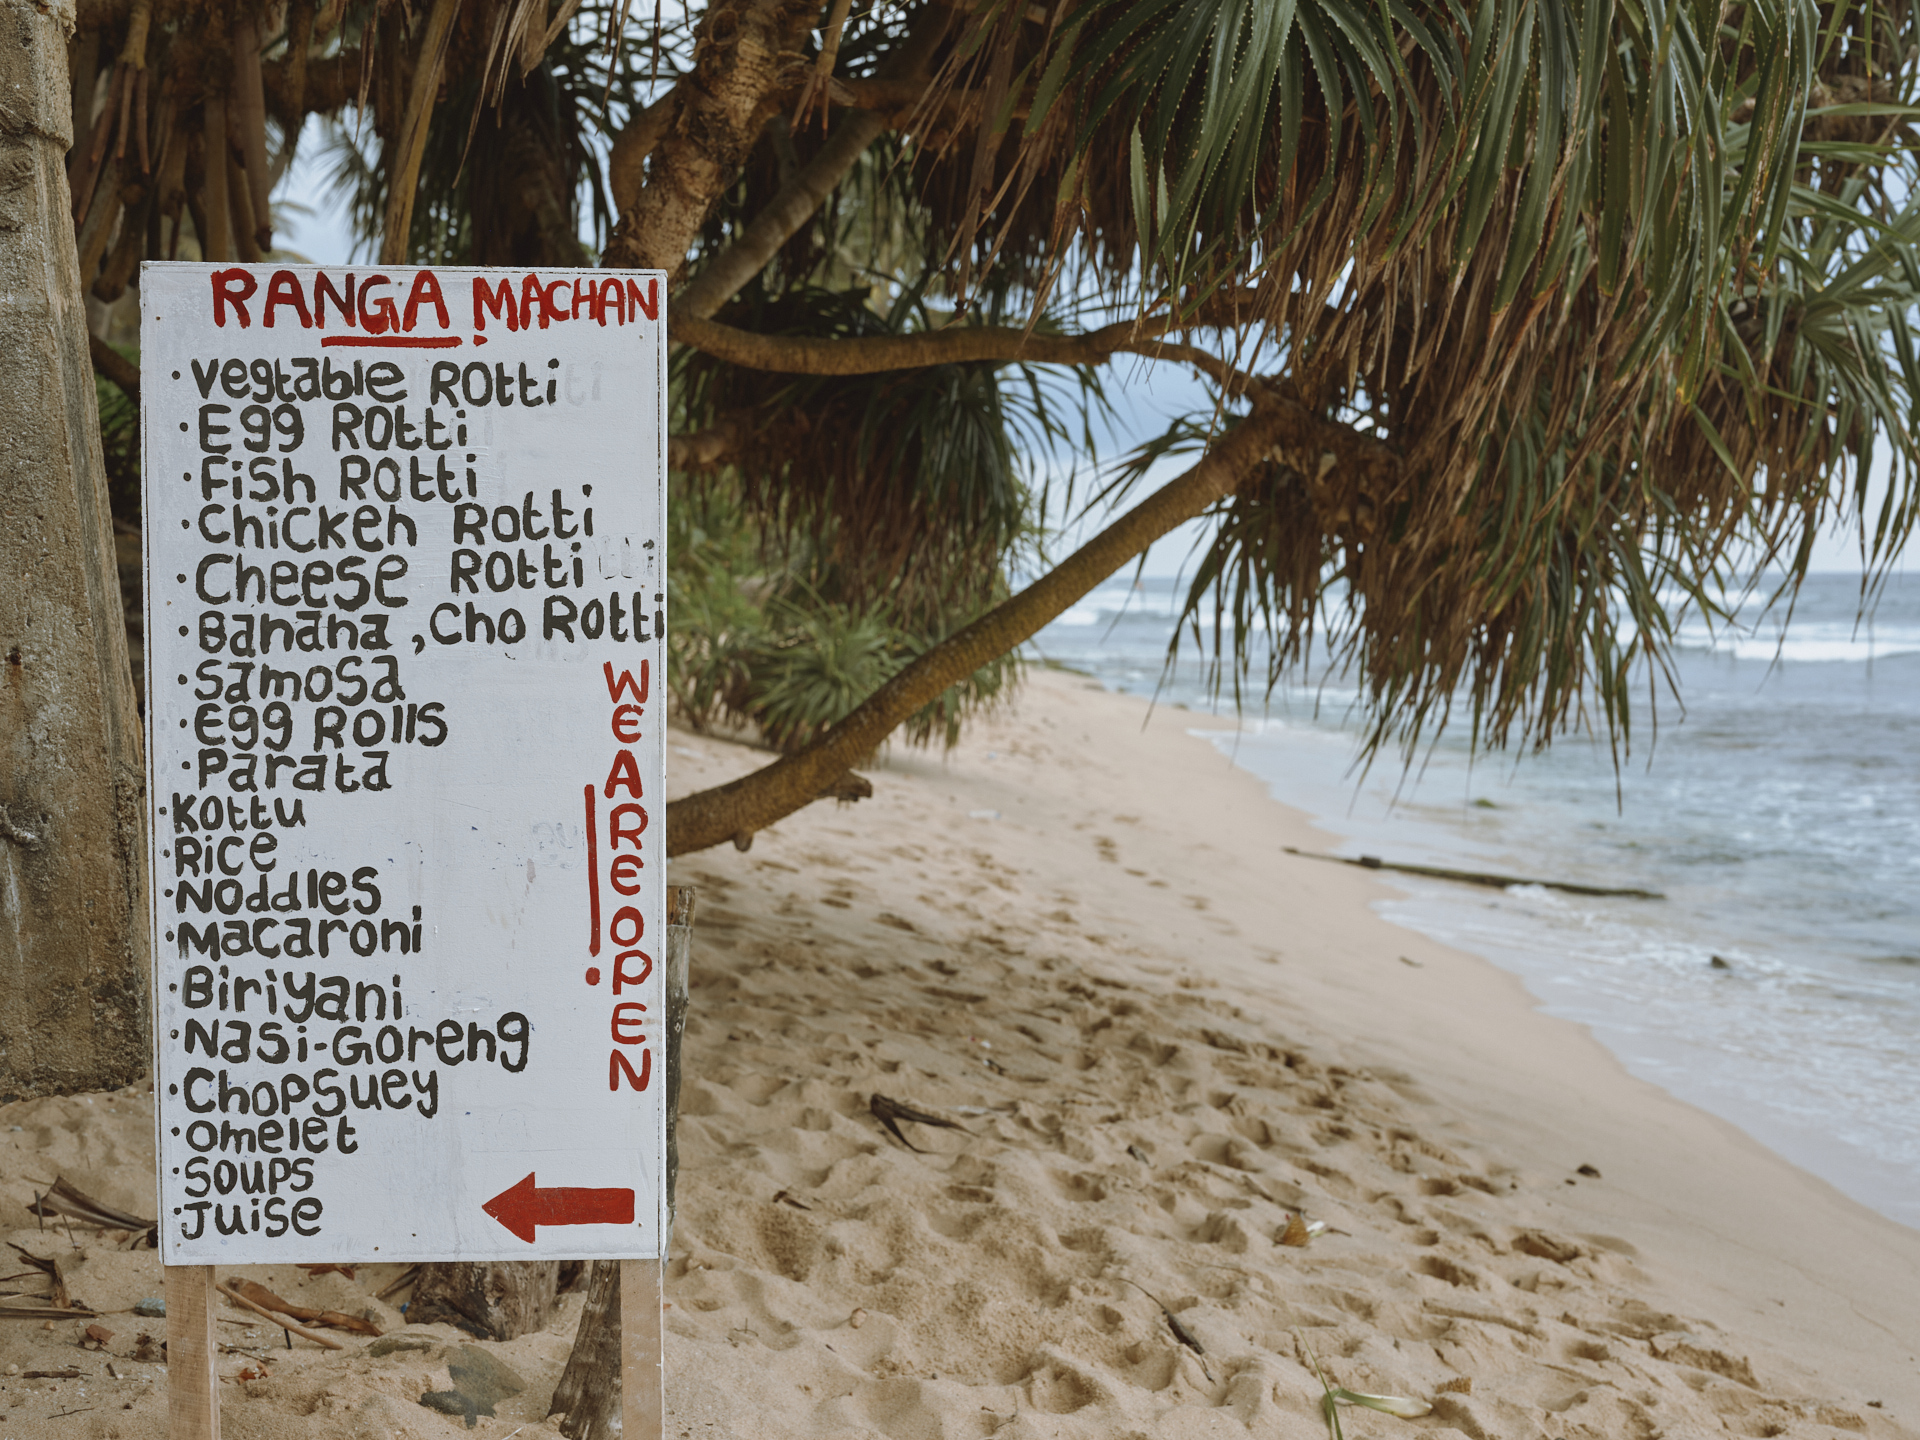 RANGA MACHAN
· Vegtable Rotti
· Egg Rotti
· Fish Rotti
· Chicken Rotti
· Cheese Rotti
· Banana , Cho Rotti
· Samosa
· Egg Rolls
· Parata
· Kottu
· Rice
· Noddles
· Macaroni
· Biriyani
· Nasi-Goreng
· Chopsuey
· Omelet
· Soups
· Juise
WE ARE OPEN